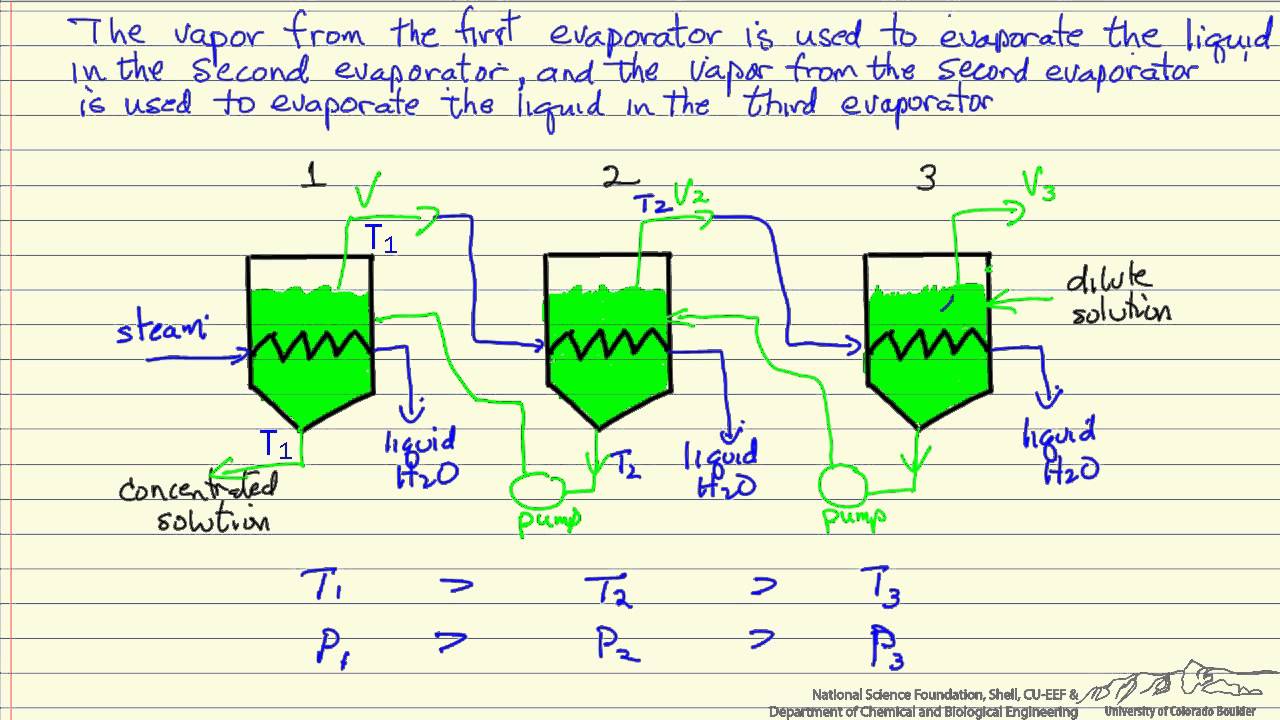 The vapor from the first evaporator is used to evaporate the liquid
in the second evaporator, and the vapor from the second evaporator
is used to evaporate the liquid in the third evaporator
1 2 3
V
T1
T2 V2
V3
steam
dilute
solution
liquid
H2O
liquid
H2O
liquid
H2O
T1
T2
concentrated
solution
pump
pump
T1 > T2 > T3
P1 > P2 > P3
National Science Foundation, Shell, CU-EEF &
Department of Chemical and Biological Engineering
University of Colorado Boulder